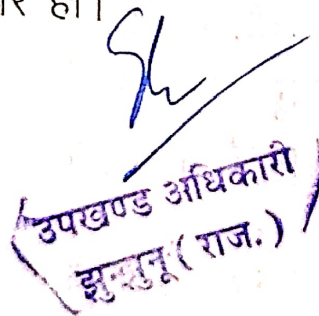 हो।
उपखण्ड अधिकारी
झुन्झुनू (राज.)